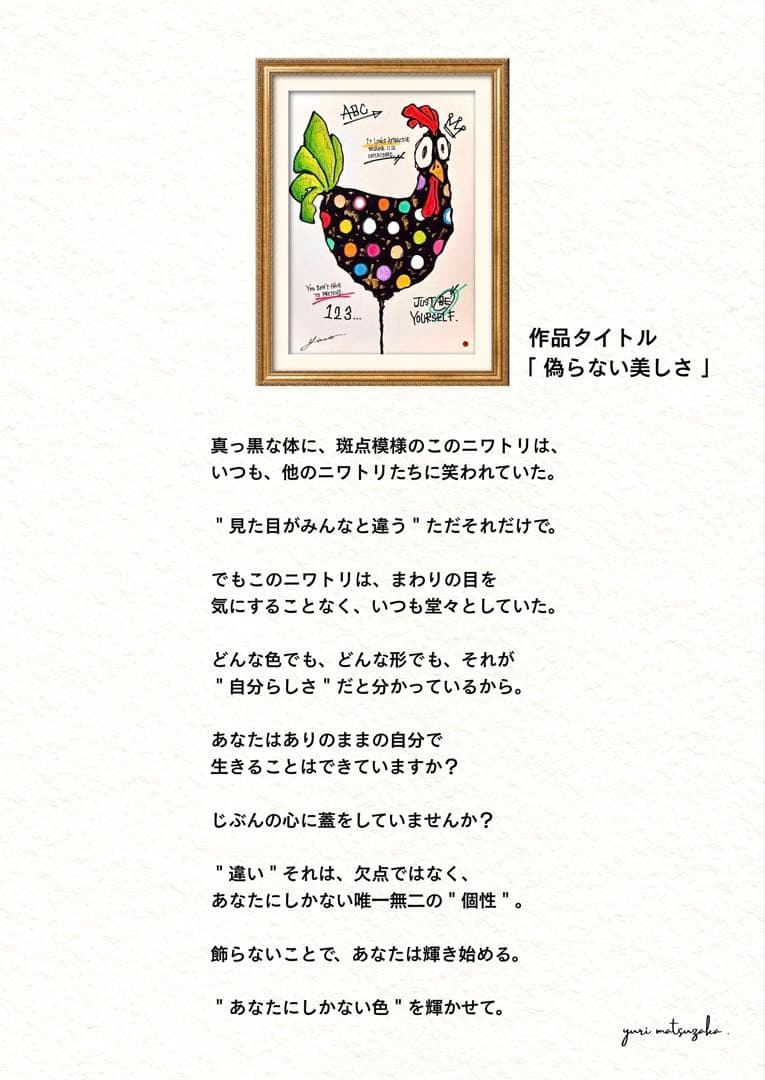 ABC
YOU DON'T HAVE
TO PRETEND.
123...
JUST BE
YOURSELF.
作品タイトル
「 偽らない美しさ 」
真っ黒な体に、斑点模様のこのニワトリは、
いつも、他のニワトリたちに笑われていた。
" 見た目がみんなと違う " ただそれだけで。
でもこのニワトリは、まわりの目を
気にすることなく、いつも堂々としていた。
どんな色でも、どんな形でも、それが
" 自分らしさ " だと分かっているから。
あなたはありのままの自分で
生きることはできていますか？
じぶんの心に蓋をしていませんか？
" 違い " それは、欠点ではなく、
あなたにしかない唯一無二の " 個性 " 。
飾らないことで、あなたは輝き始める。
" あなたにしかない色 " を輝かせて。
yuri matsuzaka .